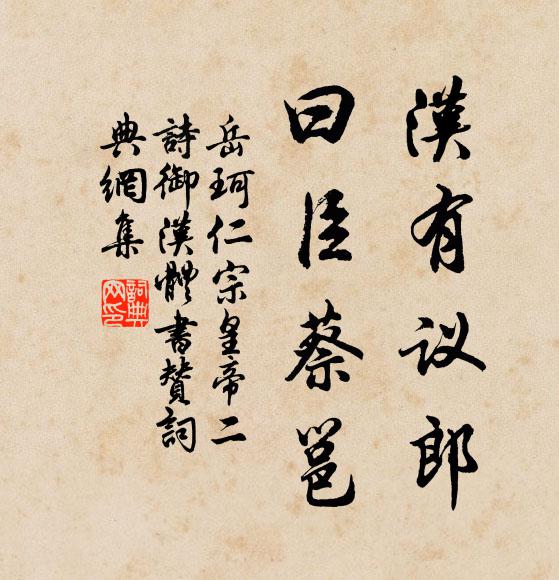 漢有议郎
曰臣蔡邕
岳珂仁宗皇帝二
詩御漢體書贊詞
典網集
詞典网印